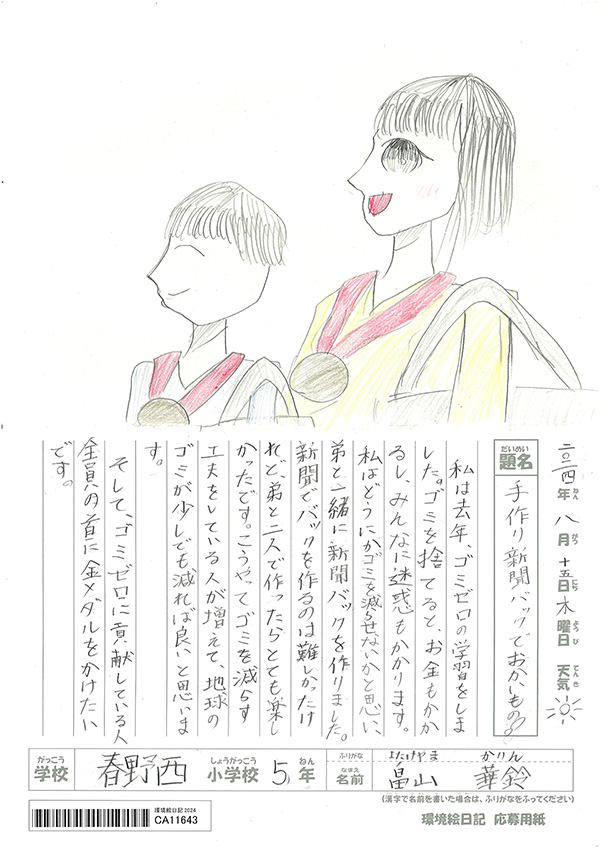 二〇二四年 八月 十五日 木曜日 天気
ねん がつ にち ようび てんき
だいめい
題名
手作り新聞バックでおかいもの♪
私は去年、ゴミゼロの学習をしま
した。ゴミを捨てると、お金もかか
るし、みんなに迷惑もかかります。
私はどうにかゴミを減らせないかと思い、
弟と一緒に新聞バックを作りました。
新聞でバックを作るのは難しかったけ
れど、弟と二人で作ったらとても楽し
かったです。こうやってゴミを減らす
工夫をしている人が増えて、地球の
ゴミが少しでも減れば良いと思いま
す。
そして、ゴミゼロに貢献している人
全員の首に金メダルをかけたい
です。
がっこう しょうがっこう ねん ふりがな はたけやま かりん
学校 春野西 小学校 5年 なまえ 名前 畠山 華鈴
(漢字で名前を書いた場合は、ふりがなをふってください)
環境絵日記 応募用紙
環境絵日記2024
CA11643